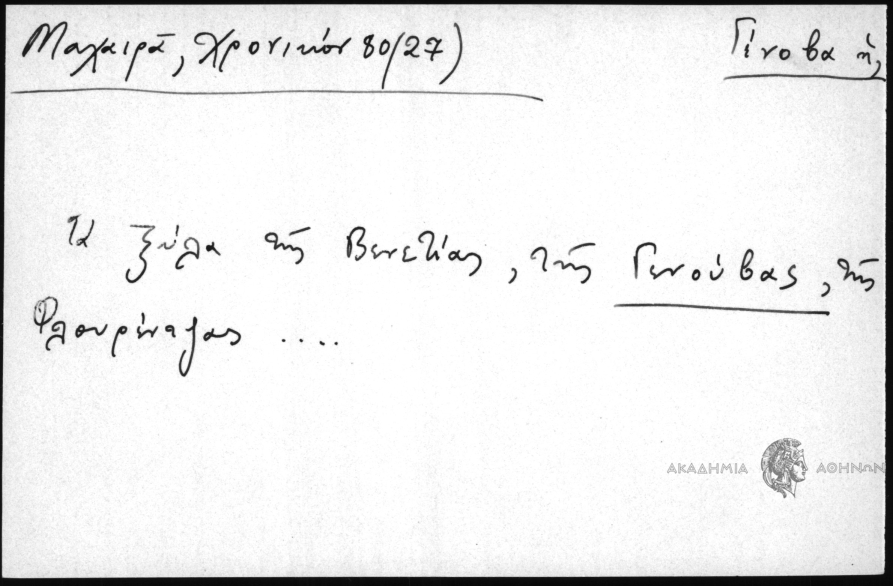 Μαχαιρᾶ, Χρονικόν 80/27)
Γένοβα ἡ,
Τὰ ξύλα τῆς Βενετίας, τῆς Γενούβας, τῆς
Φλουρέντζας ....
ΑΚΑΔΗΜΙΑ ΑΘΗΝΩΝ